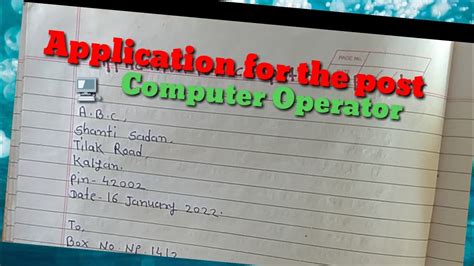 PAGE No.
Application for the post
Computer Operator
A.B.C,
Shanti Sadan,
Tilak Road,
Kalyan.
Pin-42002
Date-16 January 2022.
To,
Box No. NP. 1412